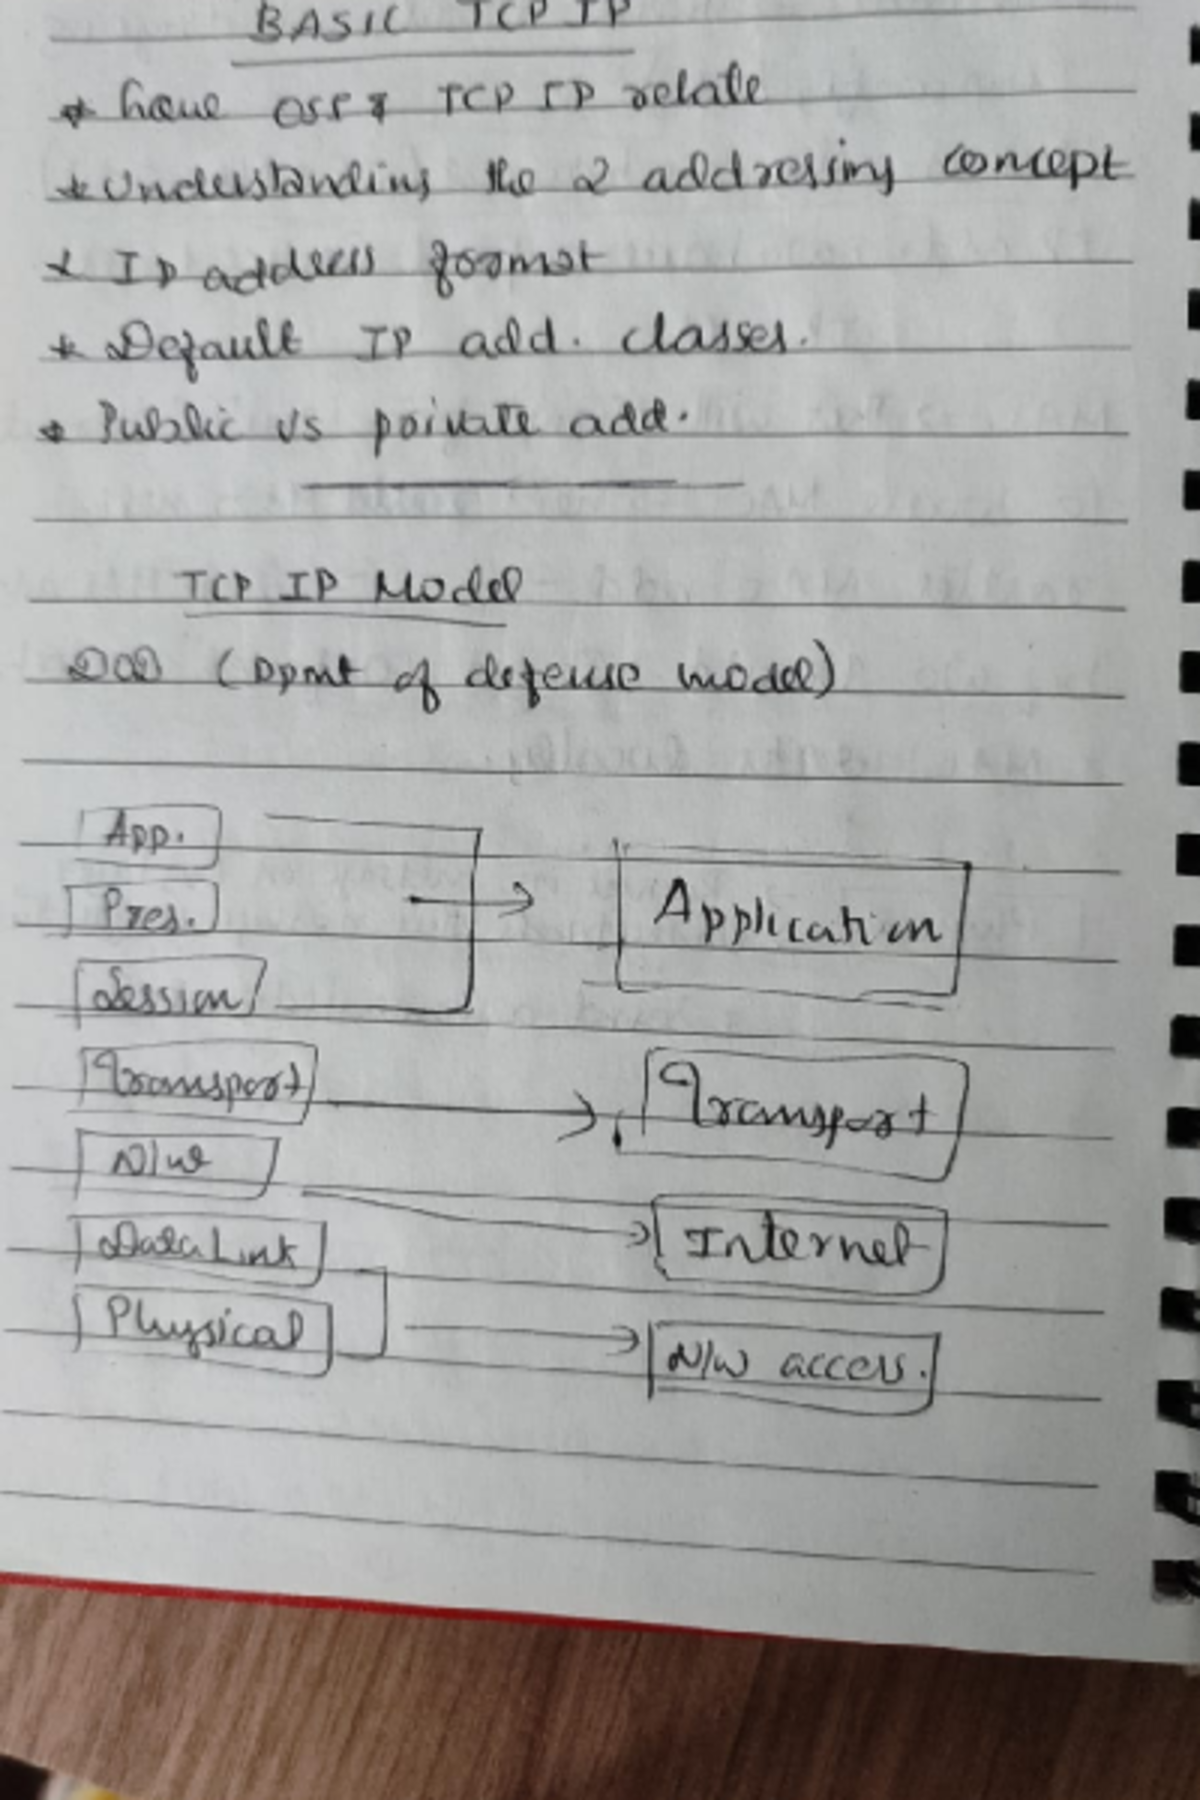 BASIC TCP IP
* have OSI & TCP IP relate
* Understanding the 2 addressing concept
* IP address format
* Default IP add. classes.
* Public vs private add.
TCP IP Model
DOD (Dpmt of defense model)
App.
Pres.
Application
Session
Transport
Transport
N/w
Internet
Data Link
Physical
N/w access.